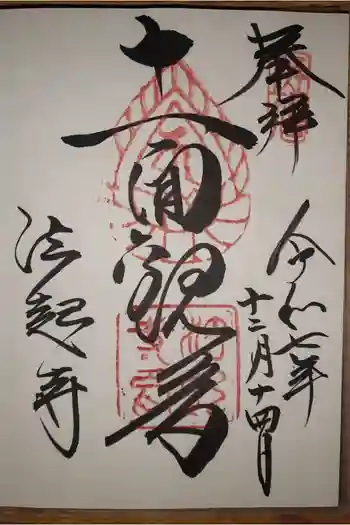 奉拝
令和七年
十二月十四日
十一面観音
法起寺